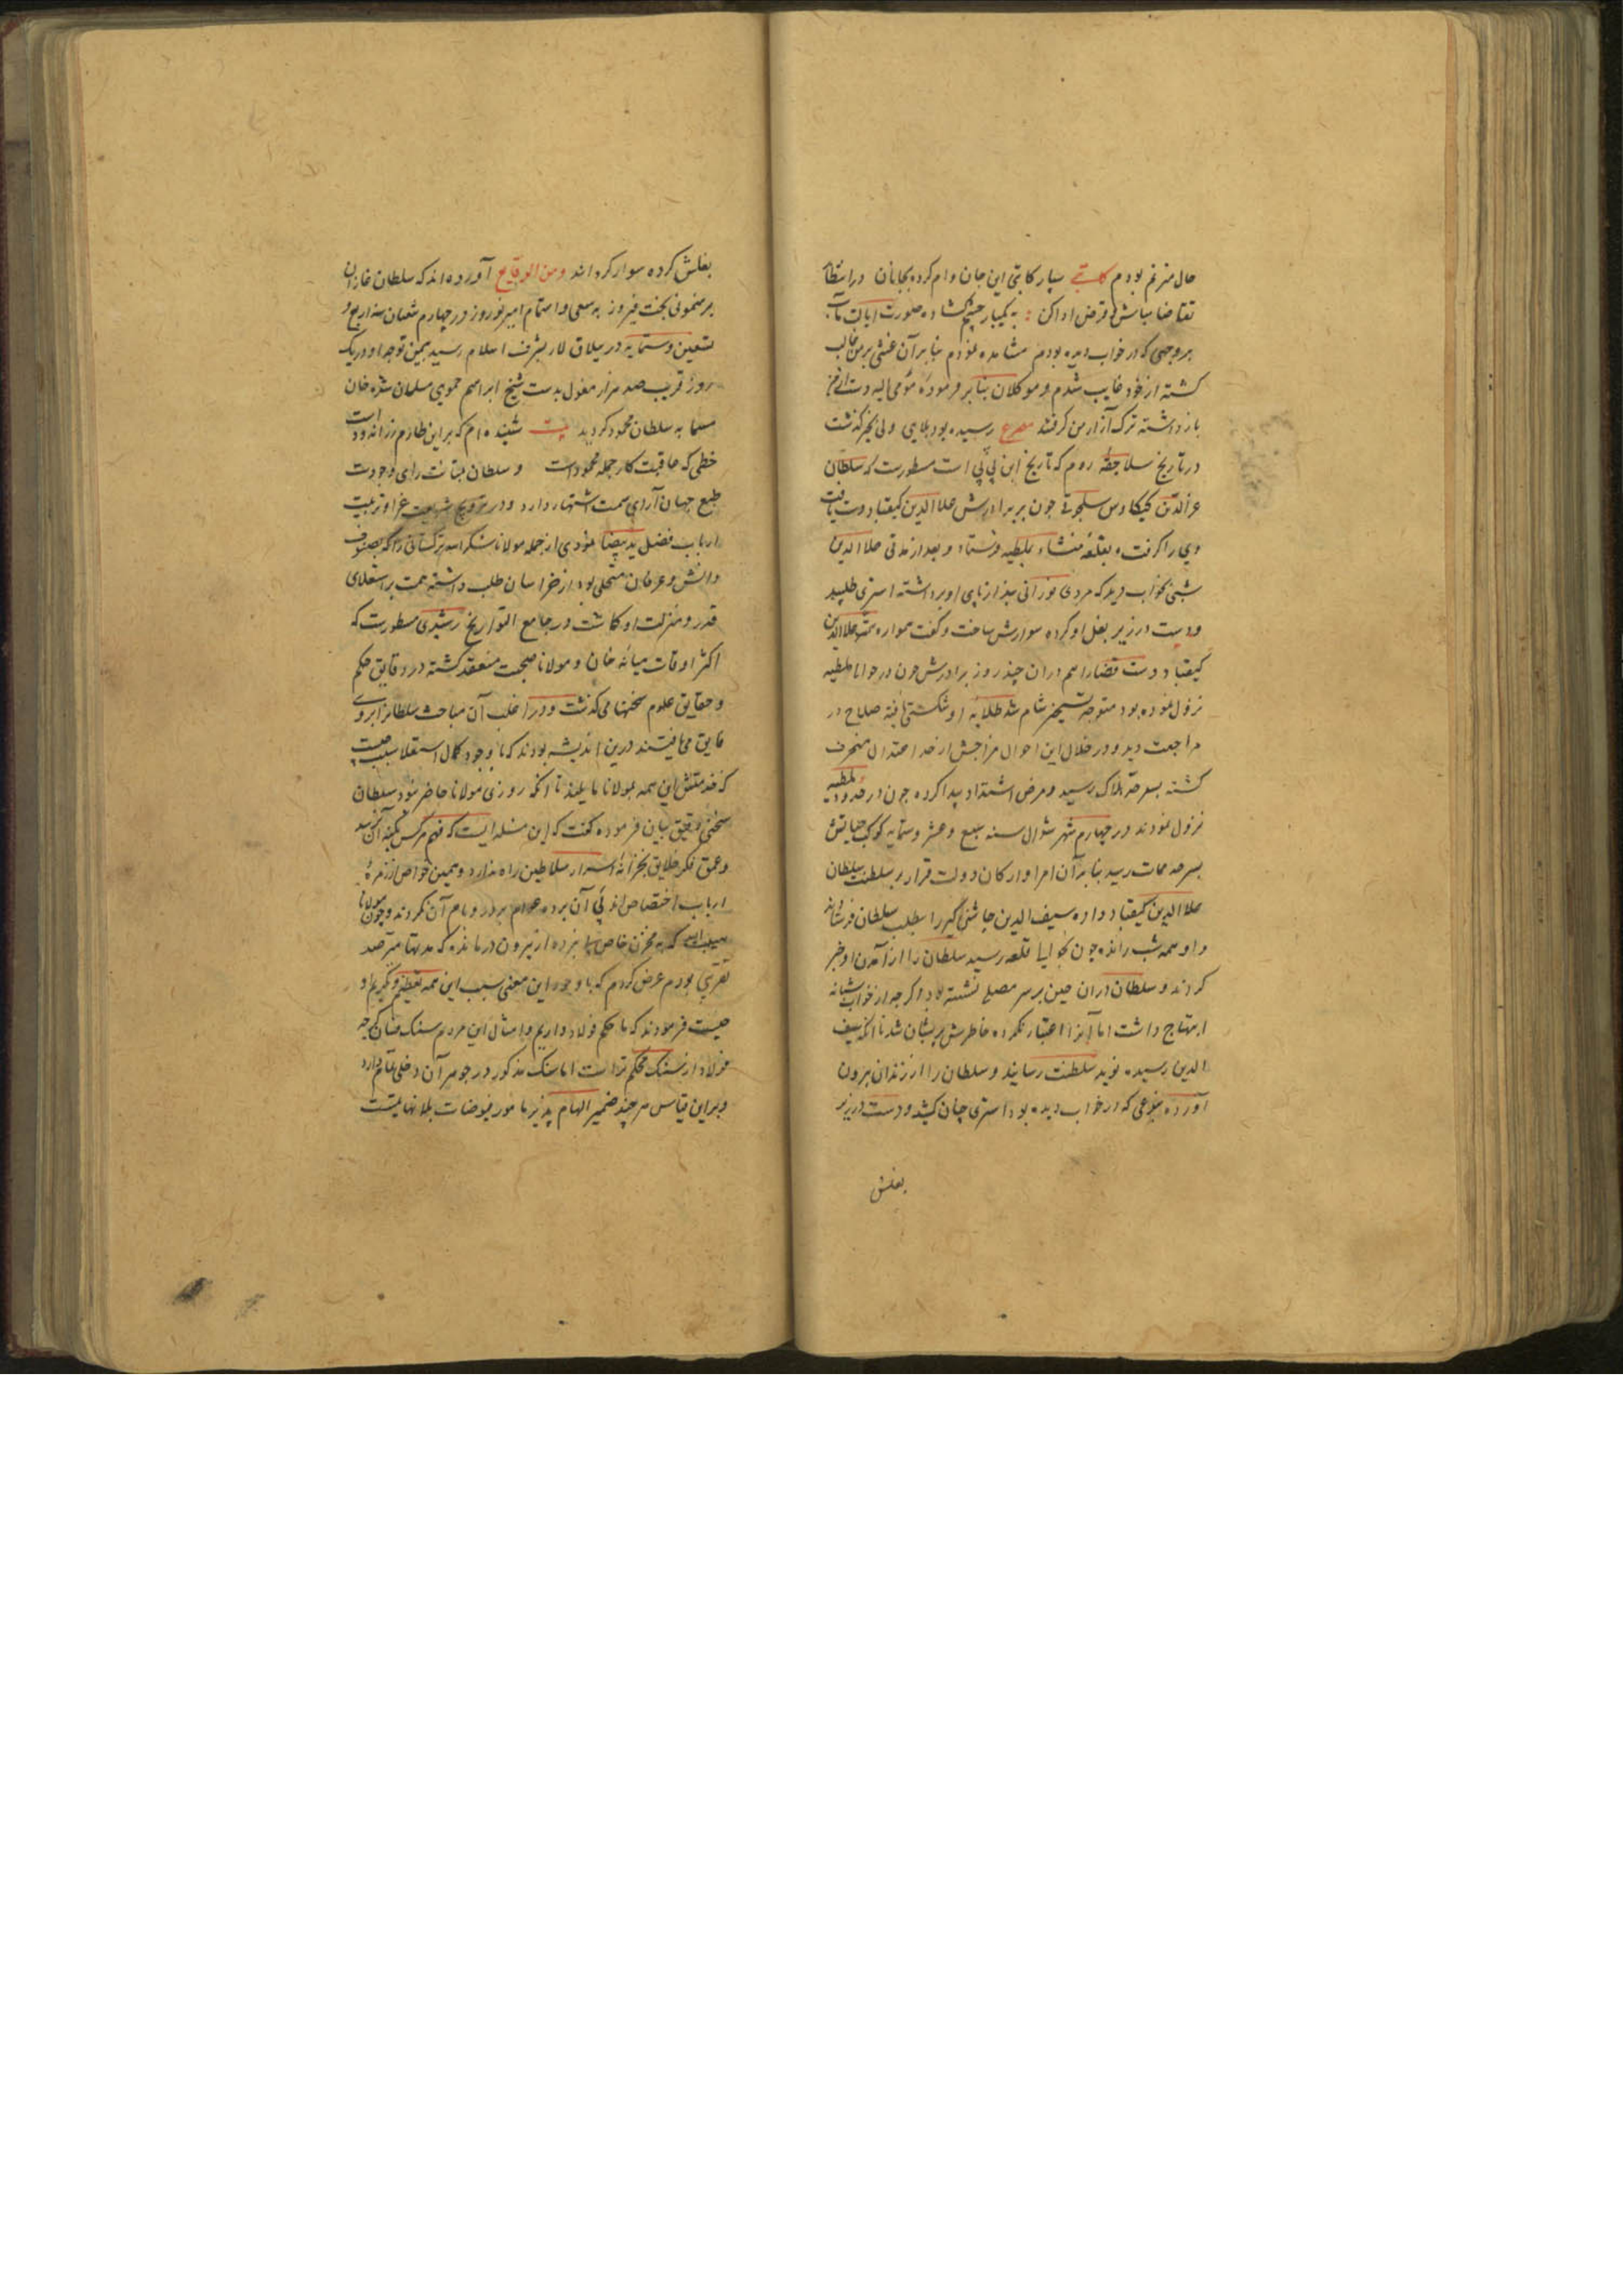 حال مترنم بودم کاتبی بسپار کاتبی این جان وام کرده بجانان در انتظار
تقاضا مباش و قرض ادا کن به یکبار چشم کشاده صورت ایالت مآب
بر وجهی که در خواب دیده بودم مشاهده نمودم بنابر آن غشی بر من غالب
کشته از خود غایب شدم و موکلان بنا بر فرموده مومی الیه دست از من
باز داشته ترک آزار من کرفتند مصرع رسیده بود بلایی ولی بخیر کذشت
در تاریخ سلاجقه روم که تاریخ ابن بی بی است مسطورست که سلطان
عزالدین کیکاوس سلجوقی چون بر برادرش علاالدین کیقباد دست یافت
وی را کرفته بقلعه منشار بملطیه فرستاد و بعد از مدتی علاالدین
شبی بخواب دید که مردی نورانی بند از پای او برداشته استری طلبید
و دست در زیر بغل او کرده سوارش ساخت و کفت همواره همت علاالدین
کیقباد دوست قضا را هم دران چند روز برادرش چون در حوالی ملطیه
نزول نموده بود متوجه تسخیر شام شد طلایه او شکستی یافته صلاح در
مراجعت دید و در خلال این احوال مزاجش از حد اعتدال منحرف
کشته بسرحد هلاک رسید و مرض اشتداد پیدا کرده چون در حدود ملطیه
نزول نمودند در چهارم شهر شوال سنه سبع و عشر و ستمایه کوکب حیاتش
بسرحد ممات رسید بنابر آن امرا و ارکان دولت قرار بر سلطنت سلطان
علاالدین کیقباد داده سیف الدین چاشنی گیر را بطلب سلطان فرستادند
و او همه شب رانده چون بحوالی قلعه رسید سلطان را از آمدن او خبر
کردند و سلطان دران حین بر سر مصلی نشسته بود و اکرچه از خواب شبانه
ابتهاج داشت اما آنرا اعتبار نکرده خاطرش پریشان شد تا آنکه سیف
الدین رسیده نوید سلطنت رسانید و سلطان را از زندان بیرون
آورده بنوعی که در خواب دیده بود استری چنان کشید و دست در زیر
بغلش
بغلش کرده سوار کردانید ومن الوقایع آورده اند که سلطان غازان
برهنمونی بخت فیروز به سعی و اهتمام امیر نوروز در چهارم شعبان سنه اربع و
تسعین و ستمایه در ییلاق لار بشرف اسلام رسید بیمن توجه او در یک
روز قریب صد هزار مغول بدست شیخ ابراهیم حموی مسلمان شده خان
مسما به سلطان محمود کردید بیت شنیده ام که برین طارم زراندودست
خطی که عاقبت کار جمله محمودست و سلطان بمتانت رای و جودت
طبع جهان آرای سمت اشتهار دارد و در ترویج شریعت غرا و تربیت
ارباب فضل ید بیضا نمودی از جمله مولانا ترکستانی را که بصنوف
دانش و عرفان متحلی بود از خراسان طلب داشته همت بر استعلای
قدر و منزلت او کماشت در جامع التواریخ رشیدی مسطورست که
اکثر اوقات میانه خان و مولانا صحبت منعقد کشته در دقایق حکم
و حقایق علوم سخنها می کذشت و در اغلب آن مباحث سلطانرا بر وی
فایق می یافتند درین اندیشه بودند که با وجود کمال استقلال سبب چیست
که خدمتش این همه بمولانا مایلند تا آنکه روزی مولانا حاضر نبود سلطان
سخنی دقیق بیان فرموده کفت که این مسئله ایست که فهم هر کس بکنه آن نرسد
و عمق فکر خلایق بخزانه اسرار سلاطین راه ندارد و همین خواص از زمره
ارباب اختصاص از پی آن برده عوام بر در و بام آن نکردند و چون مولانا
که به مخزن خاص پی نبرده از بیرون در مانده که مدتها مترصد
تقریبی بودم عرض کردم که با وجود این معنی سبب این همه تعظیم و تکریم او
چیست فرمودند که ما حکم فولاد داریم و امثال این مردم سنک فسان اکرچه
فولاد از سنک محکم ترست اما سنک مذکور در جوهر آن دخلی تمام دارد
و برین قیاس هر چند ضمیر الهام پذیر ما مورد فیوضات بلا نهایتست